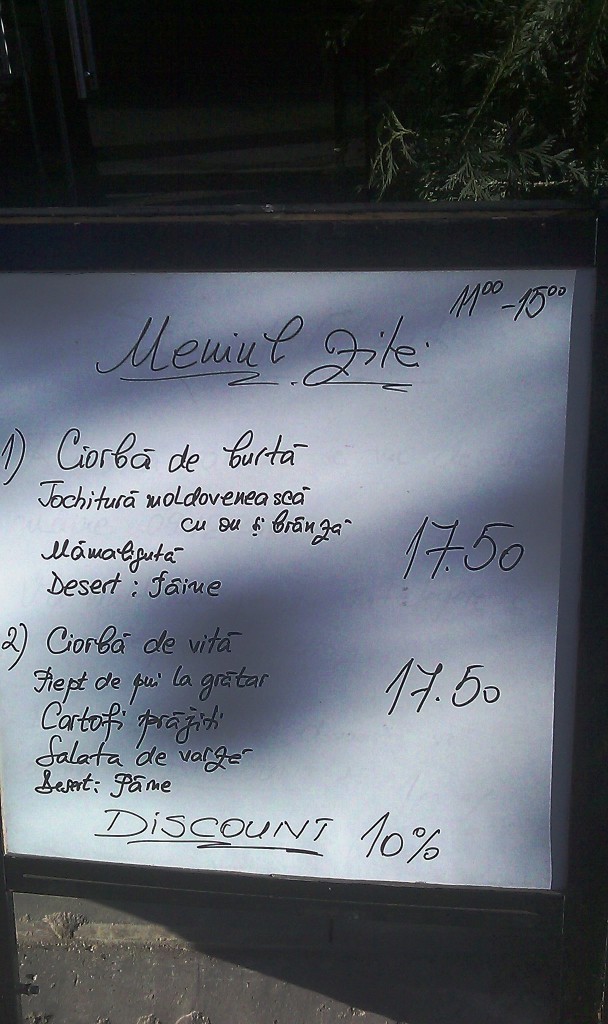 11⁰⁰ - 15⁰⁰
Meniul Zilei
1) Ciorbă de burtă
Tochitură moldovenească
cu ou și brânză
17.50
Mămăliguță
Desert: Pâine
2) Ciorbă de vită
Piept de pui la grătar
17.50
Cartofi prăjiți
Salata de varză
Desert: Pâine
DISCOUNT 10%